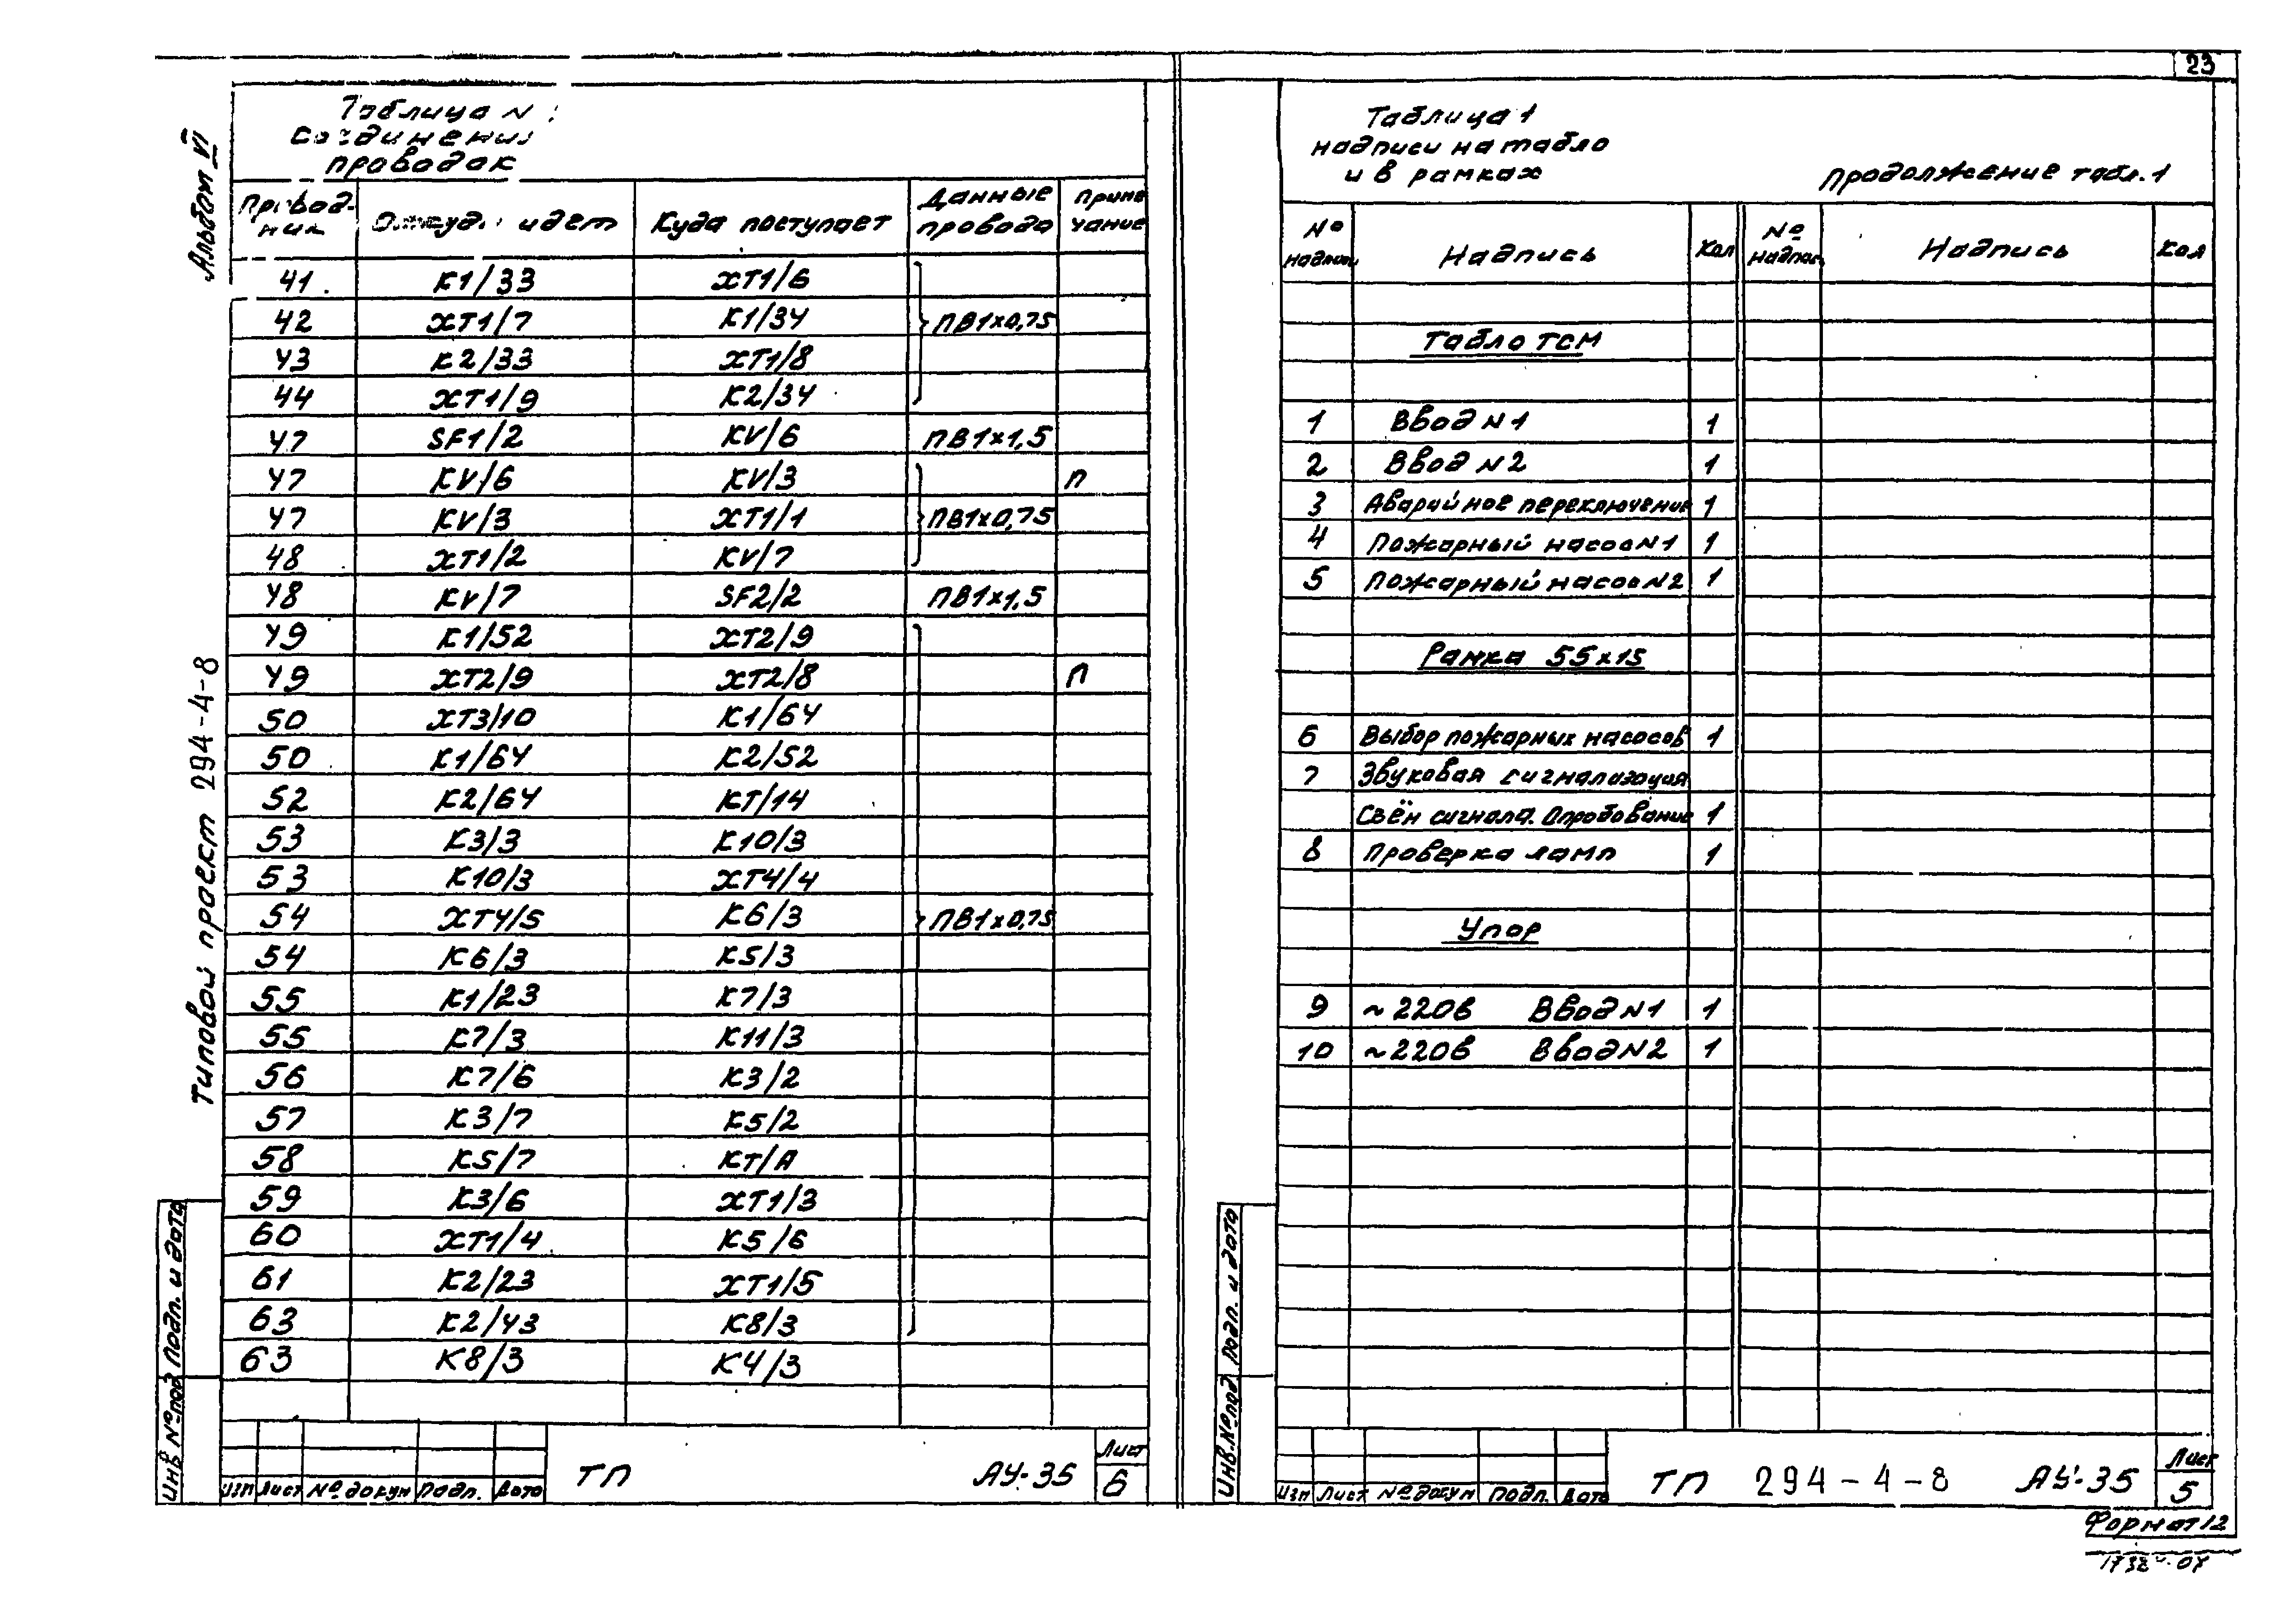 23
Альбом VI
Типовой проект 294-4-8
Таблица N
соединения
проводок
Провод-ник Откуда идет Куда поступает Данные провода Примечание
41 К1/33 ХТ1/6
42 ХТ1/7 К1/34 ПВ1х0,75
43 К2/33 ХТ1/8
44 ХТ1/9 К2/34
47 SF1/2 KV/6 ПВ1х1,5
47 KV/6 KV/3 П
47 KV/3 ХТ1/1 ПВ1х0,75
48 ХТ1/2 KV/7
48 KV/7 SF2/2 ПВ1х1,5
49 К1/52 ХТ2/9
49 ХТ2/9 ХТ2/8 П
50 ХТ3/10 К1/64
50 К1/64 К2/52
52 К2/64 КТ/14
53 К3/3 К10/3
53 К10/3 ХТ4/4
54 ХТ4/5 К6/3 ПВ1х0,75
54 К6/3 К5/3
55 К1/23 К7/3
55 К7/3 К11/3
56 К7/6 К3/2
57 К3/7 К5/2
58 К5/7 КТ/А
59 К3/6 ХТ1/3
60 ХТ1/4 К5/6
61 К2/23 ХТ1/5
63 К2/43 К8/3
63 К8/3 К4/3
Инв №подл Подп. и дата
Изм Лист №докум Подп. Дата
ТП АУ-35 Лист 6
Таблица 1
надписи на табло
и в рамках
Продолжение табл. 1
№ надписи Надпись Кол № надписи Надпись Кол
Табло ТСМ
1 Ввод N1 1
2 Ввод N2 1
3 Аварийное переключение 1
4 Пожарный насос N1 1
5 Пожарный насос N2 1
Рамка 55х15
6 Выбор пожарных насосов 1
7 Звуковая сигнализация
Съём сигнала. Опробование 1
8 Проверка ламп 1
Упор
9 ~220в Ввод N1 1
10 ~220в Ввод N2 1
Инв.№подл Подп. и дата
Изм Лист №докум Подп. Дата
ТП 294-4-8 АУ-35 Лист 5
Формат 12